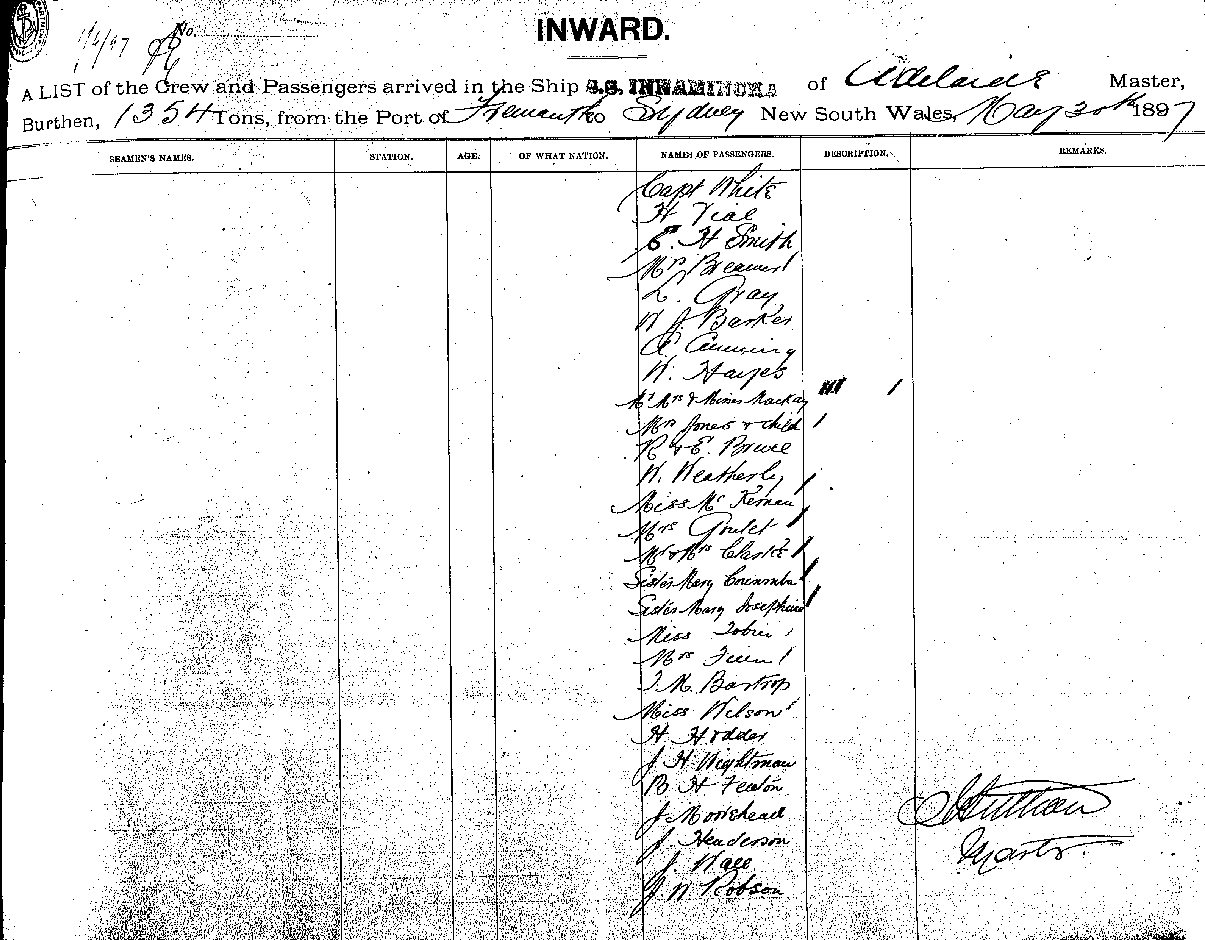 INWARD.
No.
1/6/97
A LIST of the Crew and Passengers arrived in the Ship S.S. INNAMINCKA of Adelaide Master,
Burthen, 1354 Tons, from the Port of Fremantle to Sydney New South Wales, May 30th 1897
SEAMEN'S NAMES. STATION. AGE. OF WHAT NATION. NAMES OF PASSENGERS. DESCRIPTION. REMARKS.
Capt White
H Vial
E. H Smith
Mrs
L. Gray
W J Barker
A Cumming
W. Hayes
Mr Mrs & Misses Mackay
Mrs Jones & child
R & E. Bruce
W. Weatherly
Miss Mc Kernan
Mrs Goulet
Mr & Mrs Clarke
Sister Mary
Sister Mary Josephine
Miss Tobin
Mrs
T. M. Bartrop
Miss Wilson
H. Hodder
J H Wightman
B H Featon
J Moorehead
J Henderson
J. Wall
J. W Robson
Master